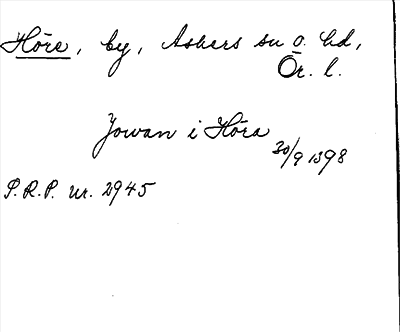 Höre, by, Askers sn o. hd,
Ör. l.
Jowan i Höra
30/9 1398
S.R.P. nr. 2945